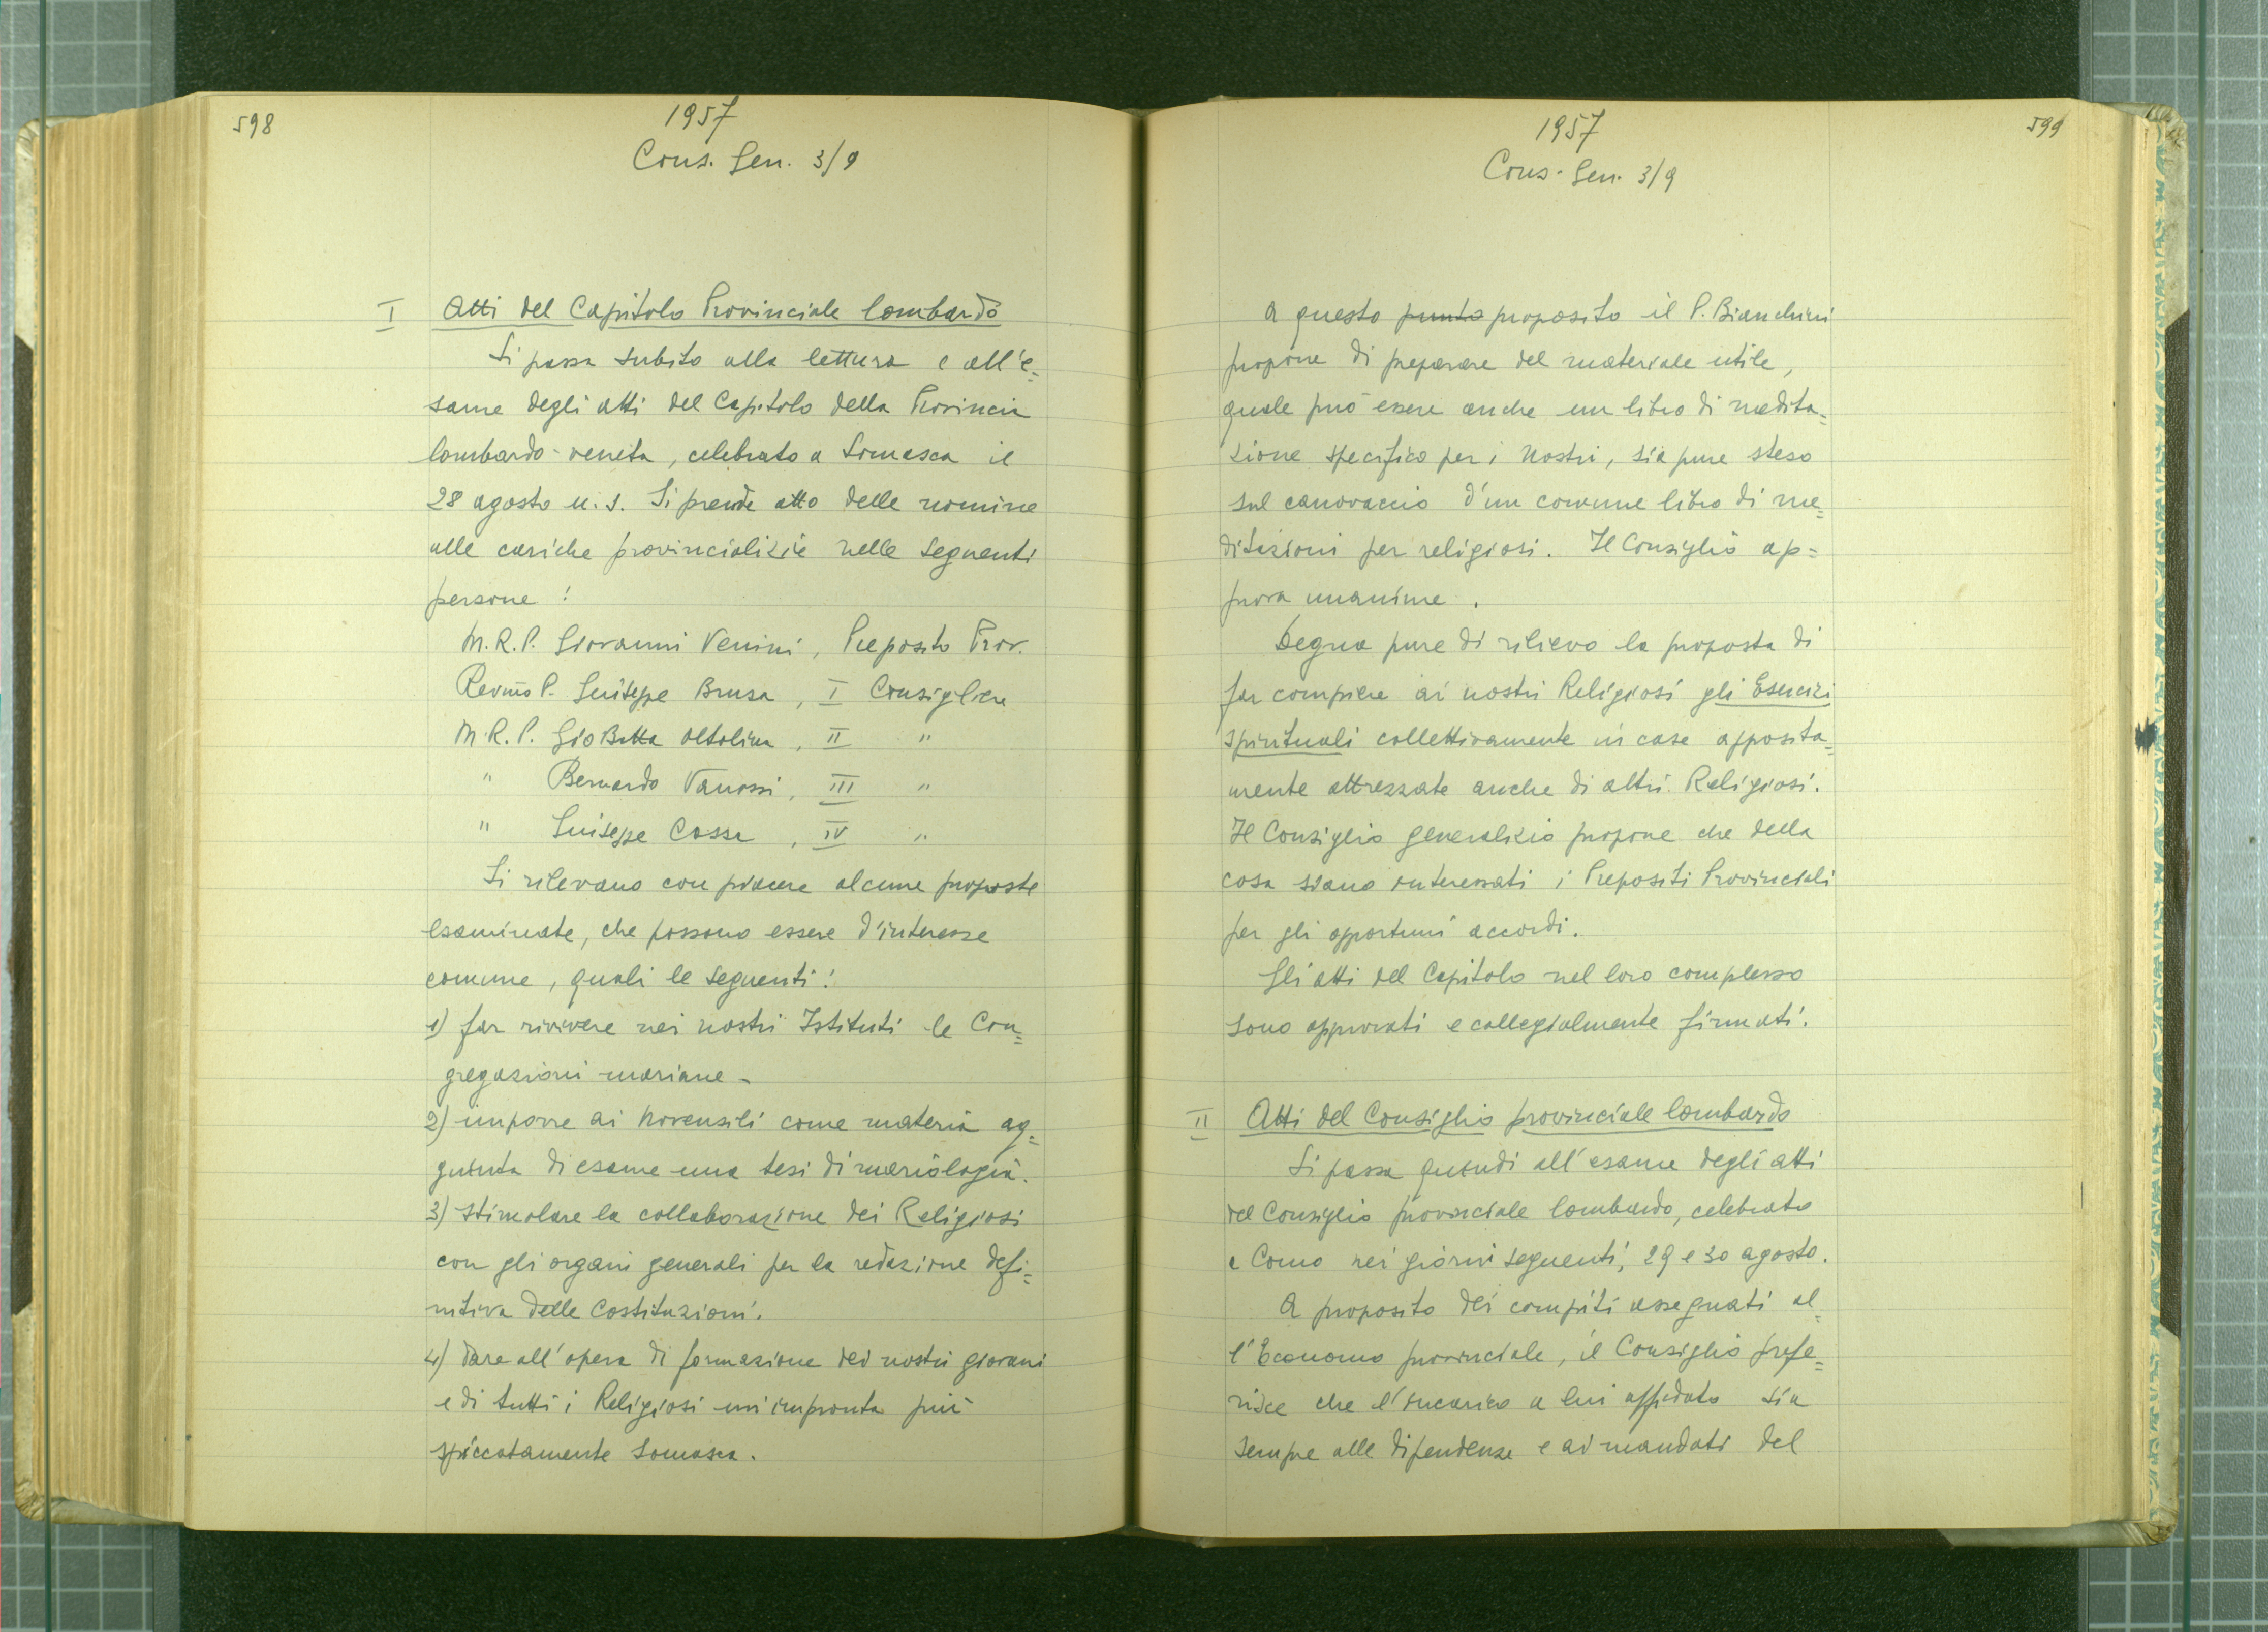 598
1957
Cons. Gen. 3/9
I Atti del Capitolo Provinciale lombardo
Si passa subito alla lettura e all'e=
same degli atti del Capitolo della Provincia
lombardo-veneta, celebrato a Somasca il
28 agosto u.s. Si prende atto delle nomine
alle cariche provincializie nelle seguenti
persone:
M.R.P. Giovanni Venini, Preposito Prov.
Revmo P. Giuseppe Brusa, I Consigliere
M.R.P. GioBatta Oltolina, II "
" Bernardo Vanossi, III "
" Giuseppe Cossa, IV "
Si rilevano con piacere alcune proposte
esaminate, che possono essere d'interesse
comune, quali le seguenti:
1) far rivivere nei nostri Istituti le Con=
gregazioni mariane -
2) imporre ai Novensili come materia ag=
giunta di esame una tesi di mariologia.
3) stimolare la collaborazione dei Religiosi
con gli organi generali per la redazione defi=
nitiva delle Costituzioni.
4) dare all'opera di formazione dei nostri giovani
e di tutti i Religiosi un'impronta più
spiccatamente somasca.
599
1957
Cons. Gen. 3/9
A questo punto proposito il P. Bianchini
propone di preparare del materiale utile,
quale può essere anche un libro di medita=
zione specifico per i Nostri, sia pure steso
sul canovaccio d'un comune libro di me=
ditazioni per religiosi. Il Consiglio ap=
prova unanime.
Degna pure di rilievo la proposta di
far compiere ai nostri Religiosi gli Esercizi
spirituali collettivamente in case apposita=
mente attrezzate anche di altri Religiosi.
Il Consiglio generalizio propone che della
cosa siano interessati i Prepositi Provinciali
per gli opportuni accordi.
Gli atti del Capitolo nel loro complesso
sono approvati e collegialmente firmati.
II Atti del Consiglio provinciale lombardo
Si passa quindi all'esame degli atti
del Consiglio provinciale lombardo, celebrato
a Como nei giorni seguenti, 29 e 30 agosto.
A proposito dei compiti assegnati al=
l'Economo provinciale, il Consiglio prefe=
risce che l'incarico a lui affidato sia
sempre alle dipendenze e ai mandati del